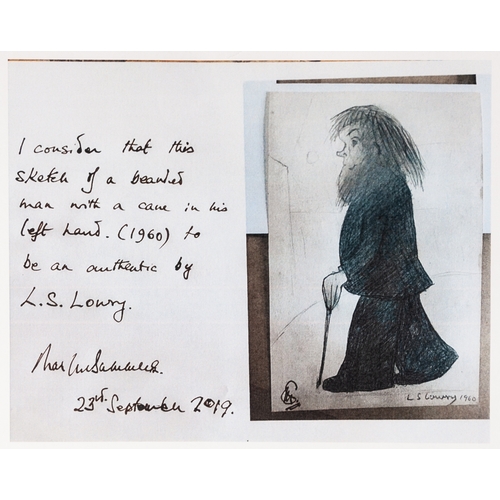 I consider that this
sketch of a bearded
man with a cane in his
left hand. (1960) to
be an authentic by
L.S. Lowry.
23rd. September 2019.
L S Lowry 1960